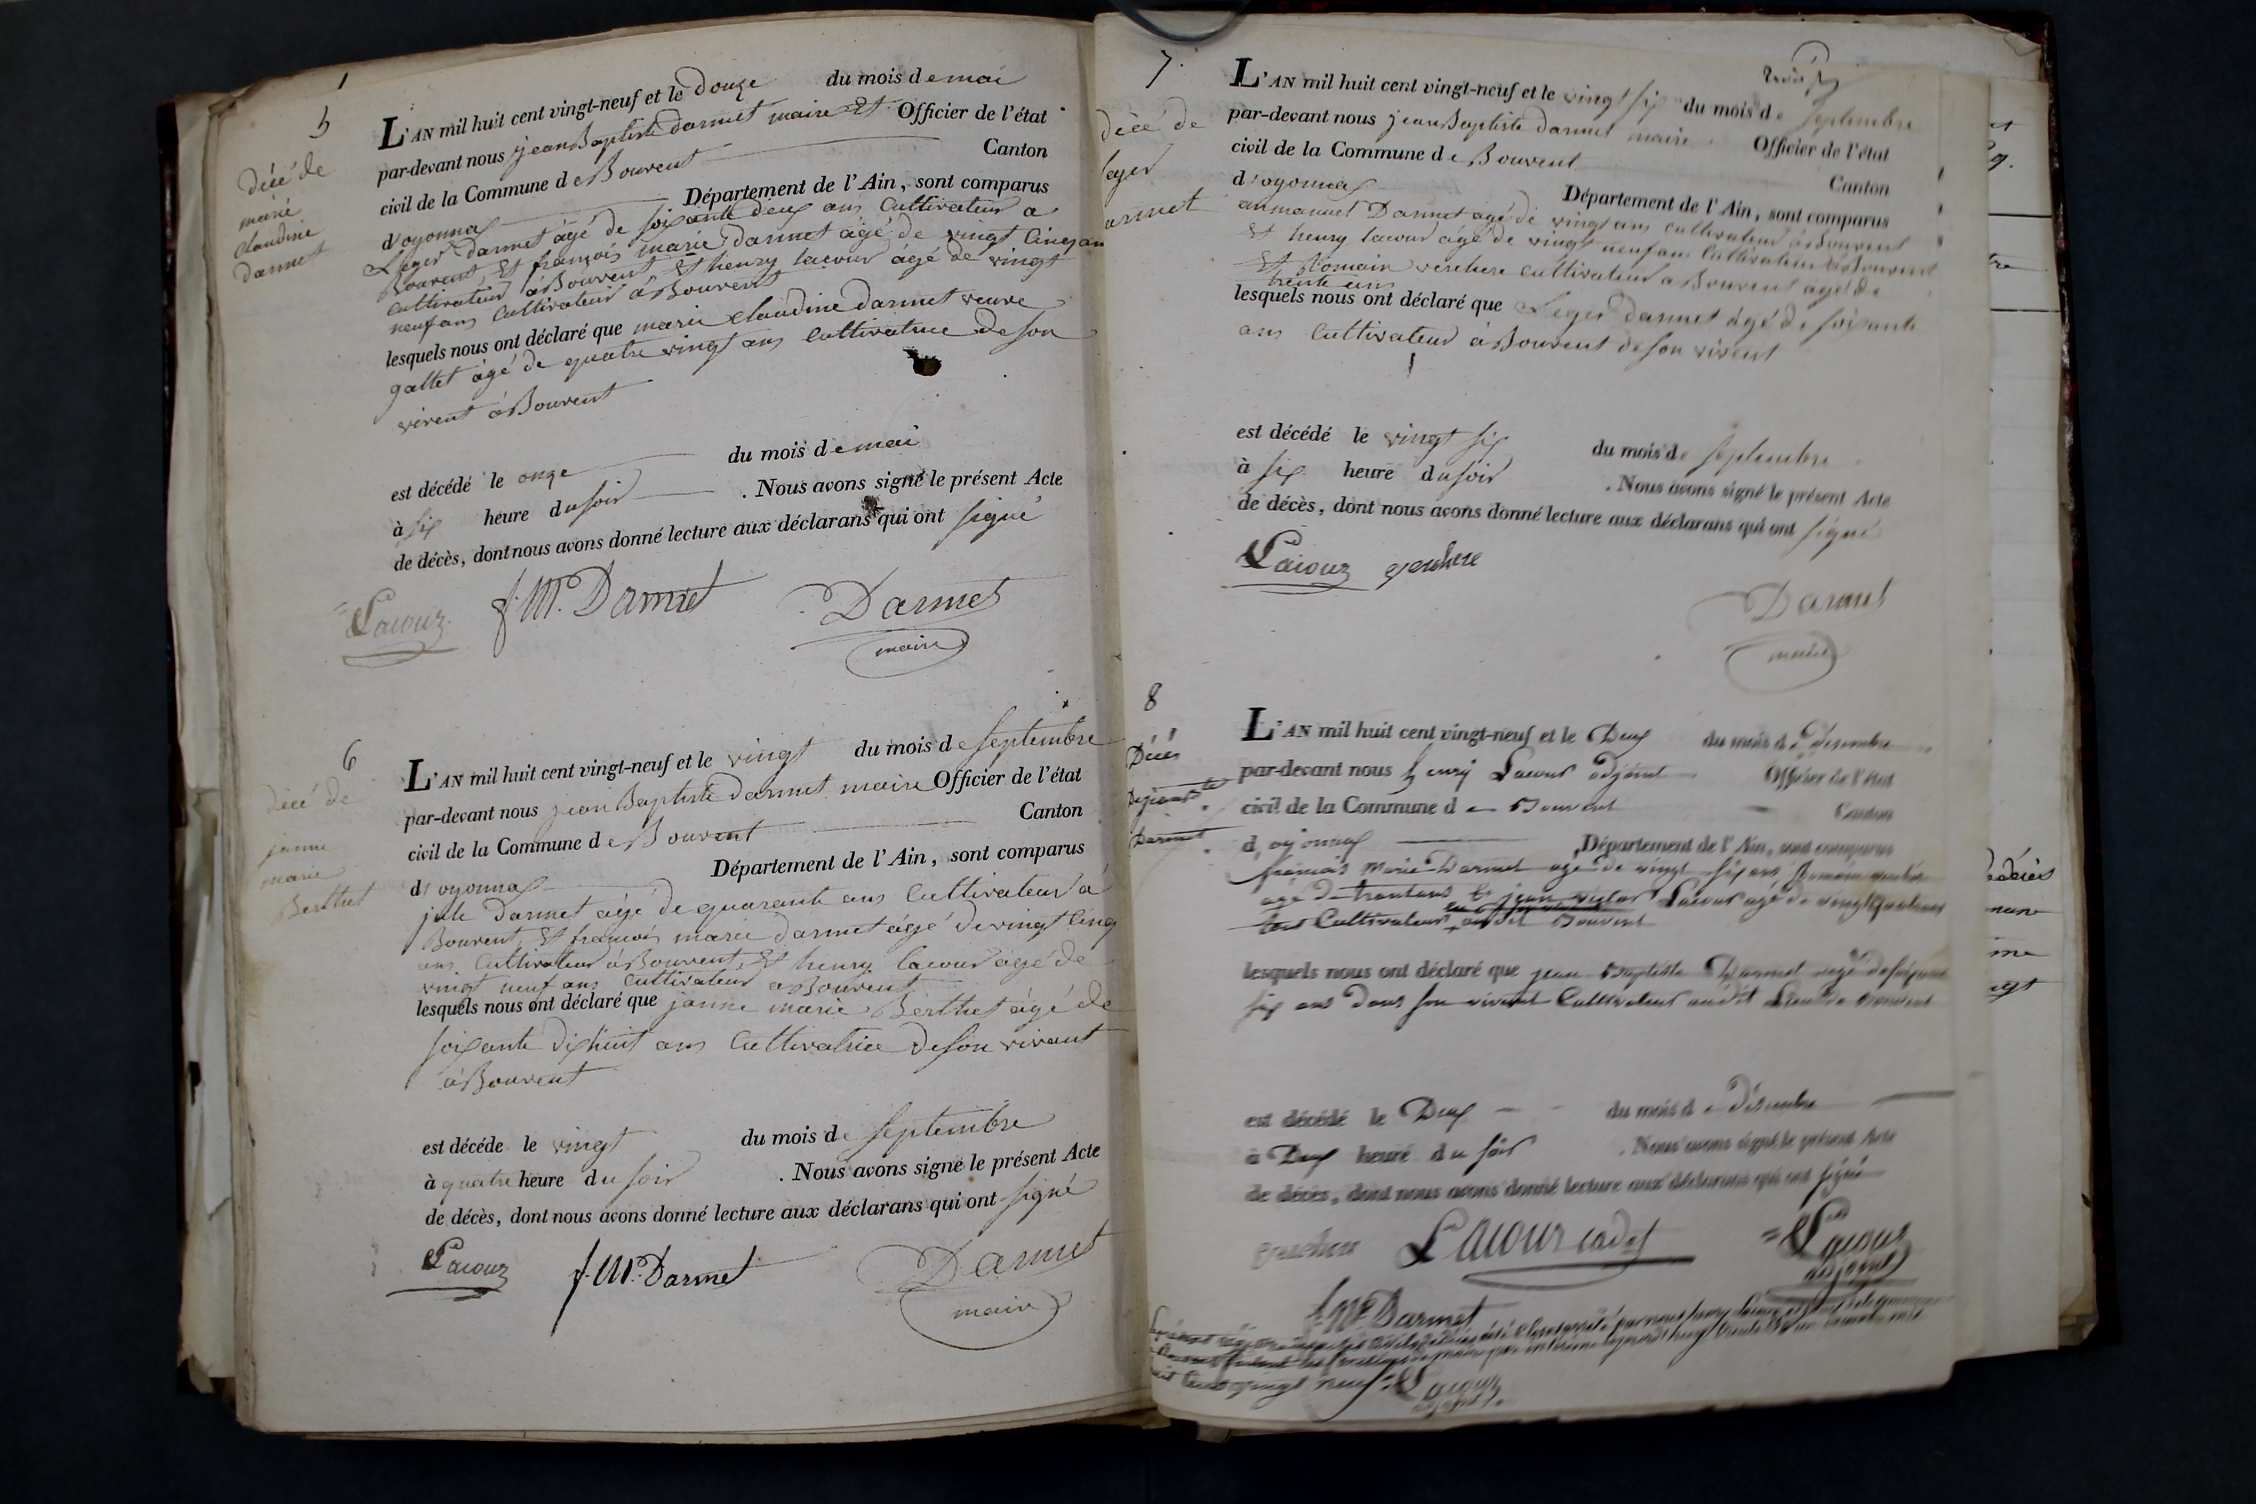 5
décé de
marie
claudine
darmet
L'AN mil huit cent vingt-neuf et le douze du mois de mai
par-devant nous jean Baptiste darmet maire Et Officier de l'état
civil de la Commune de Bouvent Canton
d'oyonnax Département de l'Ain, sont comparus
Leger darmet âgé de soixante deux ans Cultivateur a
Bouvent, Et françois marie Darmet âgé de vingt Cinq an
cultivateur à Bouvent Et henry lacour âgé de vingt
neuf ans cultivateur à Bouvent
lesquels nous ont déclaré que marie claudine darmet veuve
gallet âgé de quatre vingt ans cultivatrice de son
vivent à Bouvent
est décédé le onze du mois de mai
à six heure du soir . Nous avons signé le présent Acte
de décès, dont nous avons donné lecture aux déclarans qui ont signé
Lacour f. M. Darmet Darmet
maire
6
décé de
janne
marie
Berthet
L'AN mil huit cent vingt-neuf et le vingt du mois de septembre
par-devant nous jean Baptiste Darmet maire Officier de l'état
civil de la Commune de Bouvent Canton
d'oyonnax Département de l'Ain, sont comparus
jule Darmet âgé de quarante ans Cultivateur à
Bouvent, Et françois marie darmet âgé de vingt Cinq
ans Cultivateur à Bouvent, Et henry lacour âgé de
vingt neuf ans Cultivateur a Bouvent
lesquels nous ont déclaré que janne marie Berthet âgé de
soixante dixhuit ans Cultivatrice de son vivant
à Bouvent
est décéde le vingt du mois de septembre
à quatre heure du soir . Nous avons signé le présent Acte
de décès, dont nous avons donné lecture aux déclarans qui ont signé
Lacour f. M. Darmet Darmet
maire
7.
décé de
leger
armet
L'AN mil huit cent vingt-neuf et le vingt six du mois de septembre
par-devant nous jean Baptiste darmet maire Officier de l'état
civil de la Commune de Bouvent Canton
d'oyonnax Département de l'Ain, sont comparus
anmanuel Darmet âgé de vingt ans cultivateur à Bouvent
Et henry lacour âgé de vingt neuf ans Cultivateur à Bouvent
Et Romain verchere cultivateur a Bouvent âgé de
trente ans
lesquels nous ont déclaré que Leger Darmet âgé de soixante
ans Cultivateur à Bouvent de son vivent
est décédé le vingt six du mois de septembre
à six heure du soir . Nous avons signé le présent Acte
de décès, dont nous avons donné lecture aux déclarans qui ont signé
Lacour
Darmet
maire
8
Décès
Darmet
L'AN mil huit cent vingt-neuf et le Deux du mois de Désembre
par-devant nous henry Lacour adjoint Officier de l'état
civil de la Commune de Bouvent Canton
d'oyonnax Département de l'Ain, sont comparus
françois Marie Darmet agé de vingt six ans Romain
agé de trentans Et jean victor Lacour agé de vingt quatre ans
Cultivateur audit Bouvent
lesquels nous ont déclaré que jean Baptiste Darmet agé de soixante
six ans dans son vivent Cultivateur audit Bouvent
est décédé le Deux du mois de Désembre
à Deux heure du soir . Nous avons signé le présent Acte
de décès, dont nous avons donné lecture aux déclarans qui ont signé
Lacour cadet Lacour
adjoint
f. M. Darmet
vingt neuf. Lacour
adjoint.